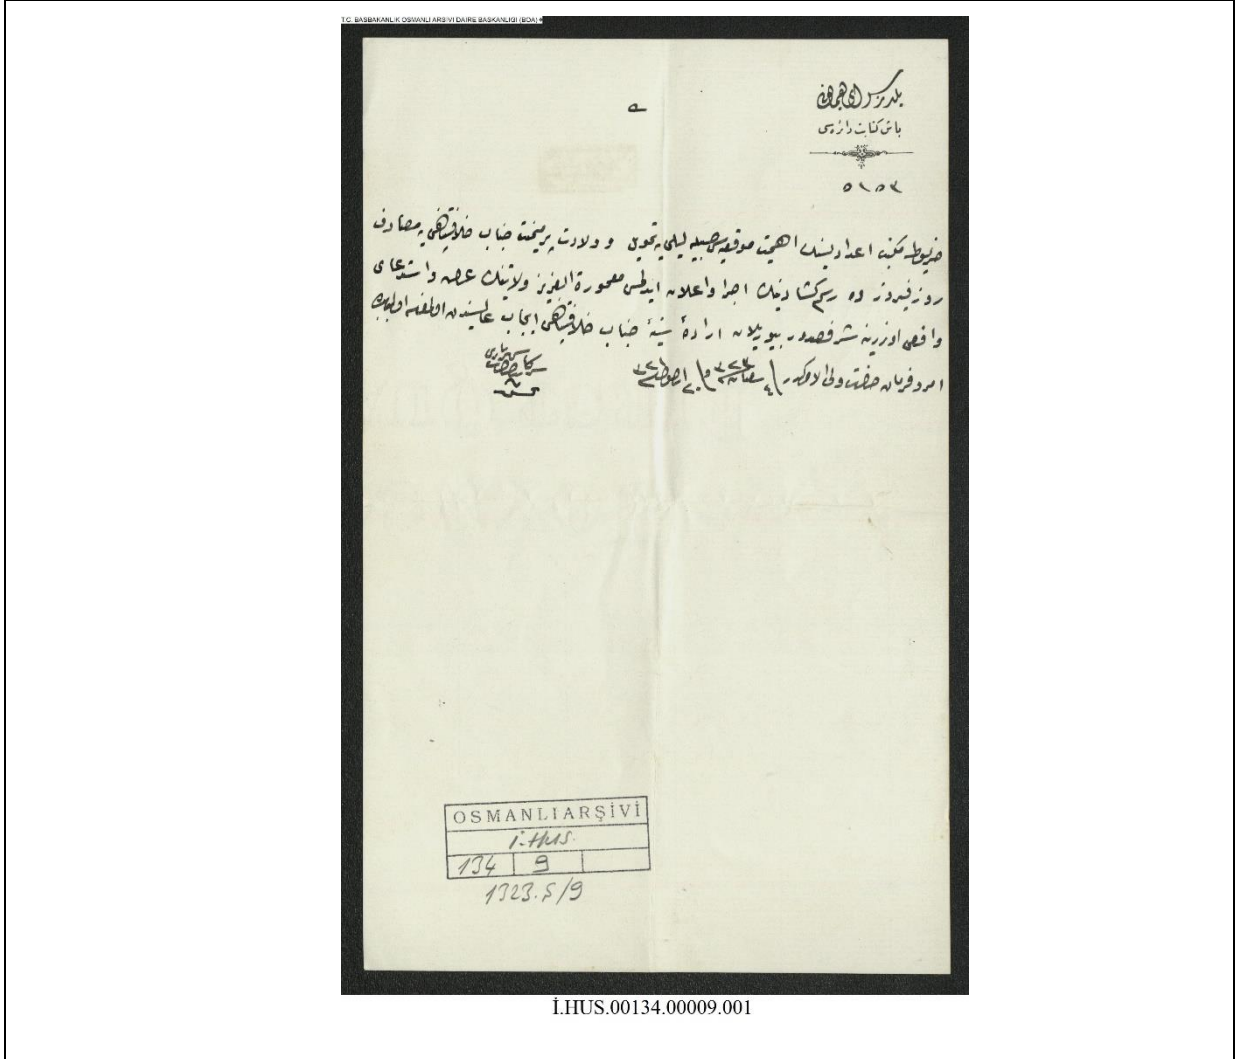 T.C. BAŞBAKANLIK OSMANLI ARŞİVİ DAİRE BAŞKANLIĞI (BOA)
یلدیز سرای همایونی
باش کتابت دائره‌سی
٥١٥٣
خربوط مکتب اعدادیسنك اهمیت موقعیه‌سی حسبیله لیلی‌یه تحویلی و ولادت پرمیمنت جناب خلافتپناهی‌یه مصادف
روز فیروزده رسم کشادینك اجرا و اعلان ایدلمسی معمورة العزیز ولایتنك عرض و استدعای
واقعی اوزرینه شرفصدور بیوریلان ارادهٔ سنیهٔ جناب خلافتپناهی ایجاب عالیسندن اولمغله اولبابده
امر و فرمان حضرت ولی الامرکدر
سرکاتب حضرت شهریاری
OSMANLI ARŞİVİ
İ.HUS.
134 9
1323.Ş/9
İ.HUS.00134.00009.001